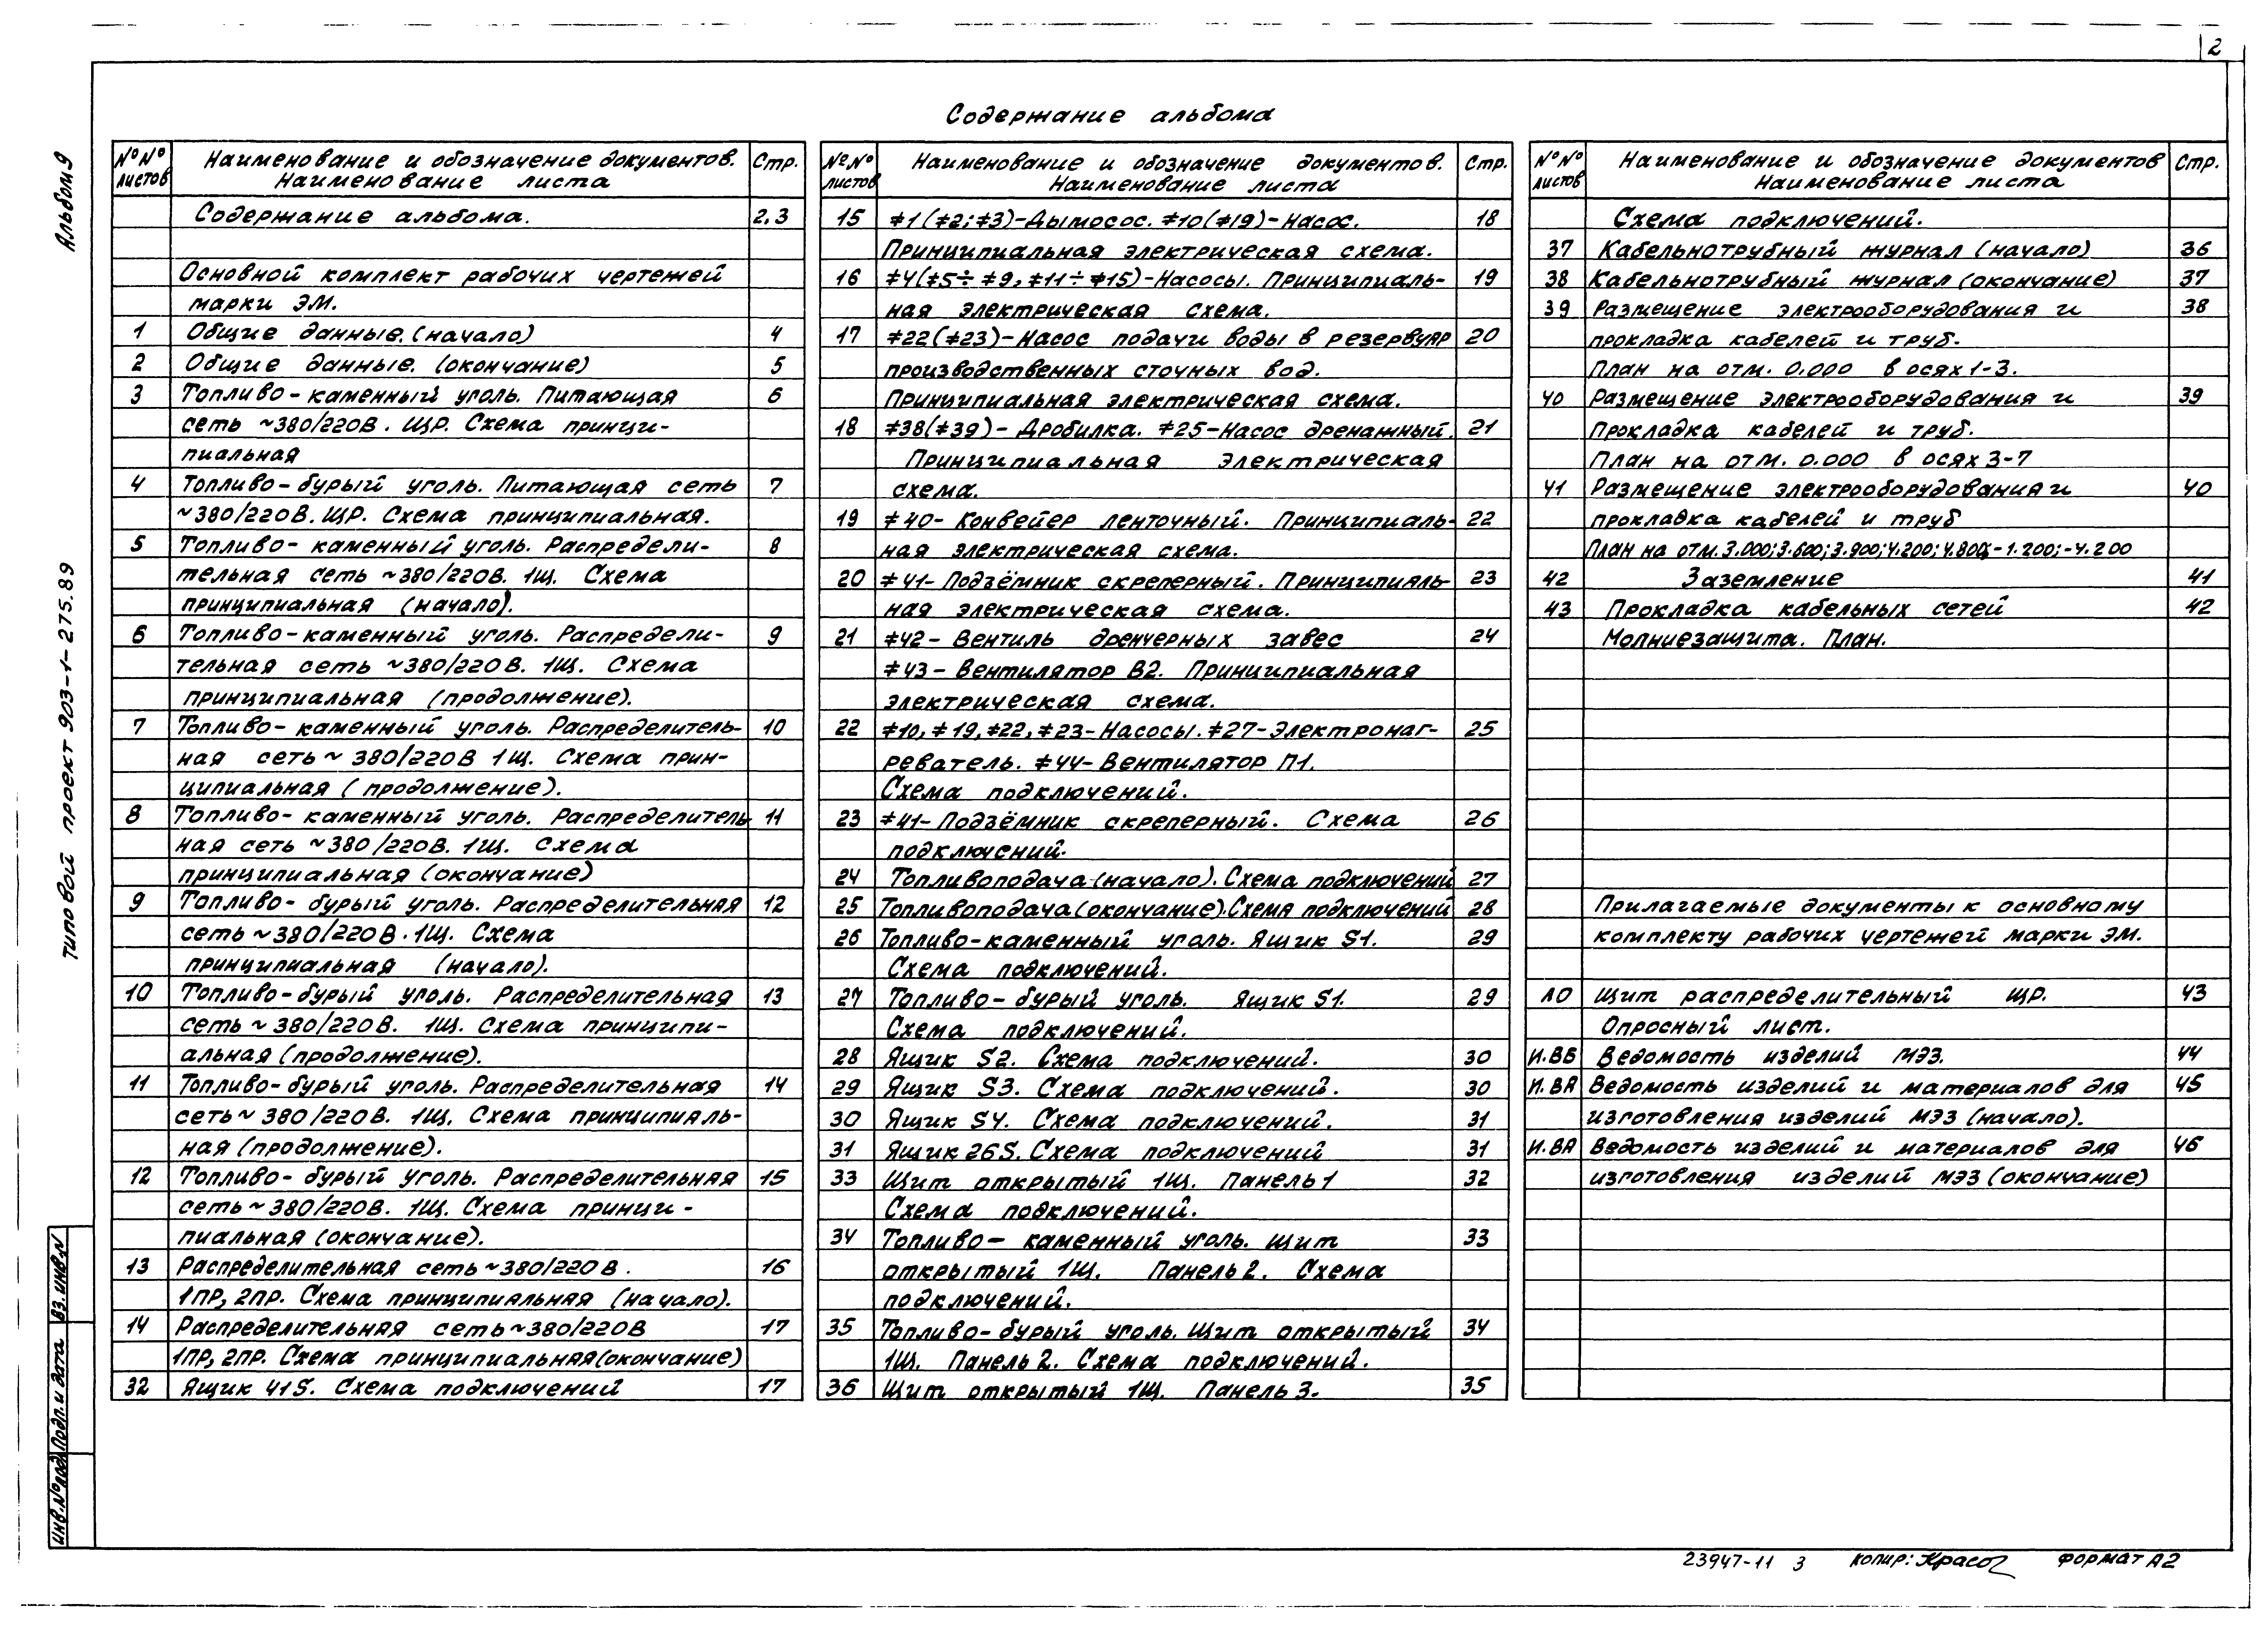 2
Содержание альбома
Альбом 9
Типовой проект 903-1-275.89
№№ листов
Наименование и обозначение документов. Наименование листа
Стр.
Содержание альбома. 2.3
Основной комплект рабочих чертежей
марки ЭМ.
1 Общие данные. (начало) 4
2 Общие данные. (окончание) 5
3 Топливо-каменный уголь. Питающая 6
сеть ~380/220В. ЩР. Схема принци-
пиальная
4 Топливо-бурый уголь. Питающая сеть 7
~380/220В. ЩР. Схема принципиальная.
5 Топливо-каменный уголь. Распредели- 8
тельная сеть ~380/220В. 1Щ. Схема
принципиальная (начало).
6 Топливо-каменный уголь. Распредели- 9
тельная сеть ~380/220В. 1Щ. Схема
принципиальная (продолжение).
7 Топливо-каменный уголь. Распределитель- 10
ная сеть ~380/220В 1Щ. Схема прин-
ципиальная (продолжение).
8 Топливо-каменный уголь. Распределитель 11
ная сеть ~380/220В. 1Щ. Схема
принципиальная (окончание)
9 Топливо-бурый уголь. Распределительная 12
сеть ~380/220В. 1Щ. Схема
принципиальная (начало).
10 Топливо-бурый уголь. Распределительная 13
сеть ~380/220В. 1Щ. Схема принципи-
альная (продолжение).
11 Топливо-бурый уголь. Распределительная 14
сеть ~380/220В. 1Щ. Схема принципиаль-
ная (продолжение).
12 Топливо-бурый уголь. Распределительная 15
сеть ~380/220В. 1Щ. Схема принци-
пиальная (окончание).
13 Распределительная сеть ~380/220В. 16
1ПР, 2ПР. Схема принципиальная (начало).
14 Распределительная сеть ~380/220В 17
1ПР, 2ПР. Схема принципиальная (окончание)
32 Ящик 41S. Схема подключений 17
№№ листов
Наименование и обозначение документов. Наименование листа
Стр.
15 ≠1(≠2;≠3)-Дымосос. ≠10(≠19)-Насос. 18
Принципиальная электрическая схема.
16 ≠4(≠5÷≠9,≠11÷≠15)-Насосы. Принципиаль- 19
ная электрическая схема.
17 ≠22(≠23)-Насос подачи воды в резервуар 20
производственных сточных вод.
Принципиальная электрическая схема.
18 ≠38(≠39)-Дробилка. ≠25-Насос дренажный. 21
Принципиальная электрическая
схема.
19 ≠40-Конвейер ленточный. Принципиаль- 22
ная электрическая схема.
20 ≠41-Подзёмник скреперный. Принципиаль- 23
ная электрическая схема.
21 ≠42-Вентиль дренчерных завес 24
≠43-Вентилятор В2. Принципиальная
электрическая схема.
22 ≠10,≠19,≠22,≠23-Насосы. ≠27-Электронаг- 25
реватель. ≠44-Вентилятор П1.
Схема подключений.
23 ≠41-Подзёмник скреперный. Схема 26
подключений.
24 Топливоподача (начало). Схема подключений 27
25 Топливоподача (окончание). Схема подключений 28
26 Топливо-каменный уголь. Ящик S1. 29
Схема подключений.
27 Топливо-бурый уголь. Ящик S1. 29
Схема подключений.
28 Ящик S2. Схема подключений. 30
29 Ящик S3. Схема подключений. 30
30 Ящик S4. Схема подключений. 31
31 Ящик 26S. Схема подключений 31
33 Щит открытый 1Щ. Панель 1 32
Схема подключений.
34 Топливо-каменный уголь. Щит 33
открытый 1Щ. Панель 2. Схема
подключений.
35 Топливо-бурый уголь. Щит открытый 34
1Щ. Панель 2. Схема подключений.
36 Щит открытый 1Щ. Панель 3. 35
№№ листов
Наименование и обозначение документов Наименование листа
Стр.
Схема подключений.
37 Кабельнотрубный журнал (начало) 36
38 Кабельнотрубный журнал (окончание) 37
39 Размещение электрооборудования и 38
прокладка кабелей и труб.
План на отм. 0.000 в осях 1-3.
40 Размещение электрооборудования и 39
прокладка кабелей и труб.
План на отм. 0.000 в осях 3-7
41 Размещение электрооборудования и 40
прокладка кабелей и труб
План на отм. 3.000; 3.600; 3.900; 4.200; 4.800; -1.200; -4.200
42 Заземление 41
43 Прокладка кабельных сетей 42
Молниезащита. План.
Прилагаемые документы к основному
комплекту рабочих чертежей марки ЭМ.
ЛО Щит распределительный ЩР. 43
Опросный лист.
И.ВБ Ведомость изделий МЭЗ. 44
И.ВА Ведомость изделий и материалов для 45
изготовления изделий МЭЗ (начало).
И.ВА Ведомость изделий и материалов для 46
изготовления изделий МЭЗ (окончание)
Вз. инв. N
Подп. и дата
Инв. № подл.
23947-11 3 копир: Формат А2